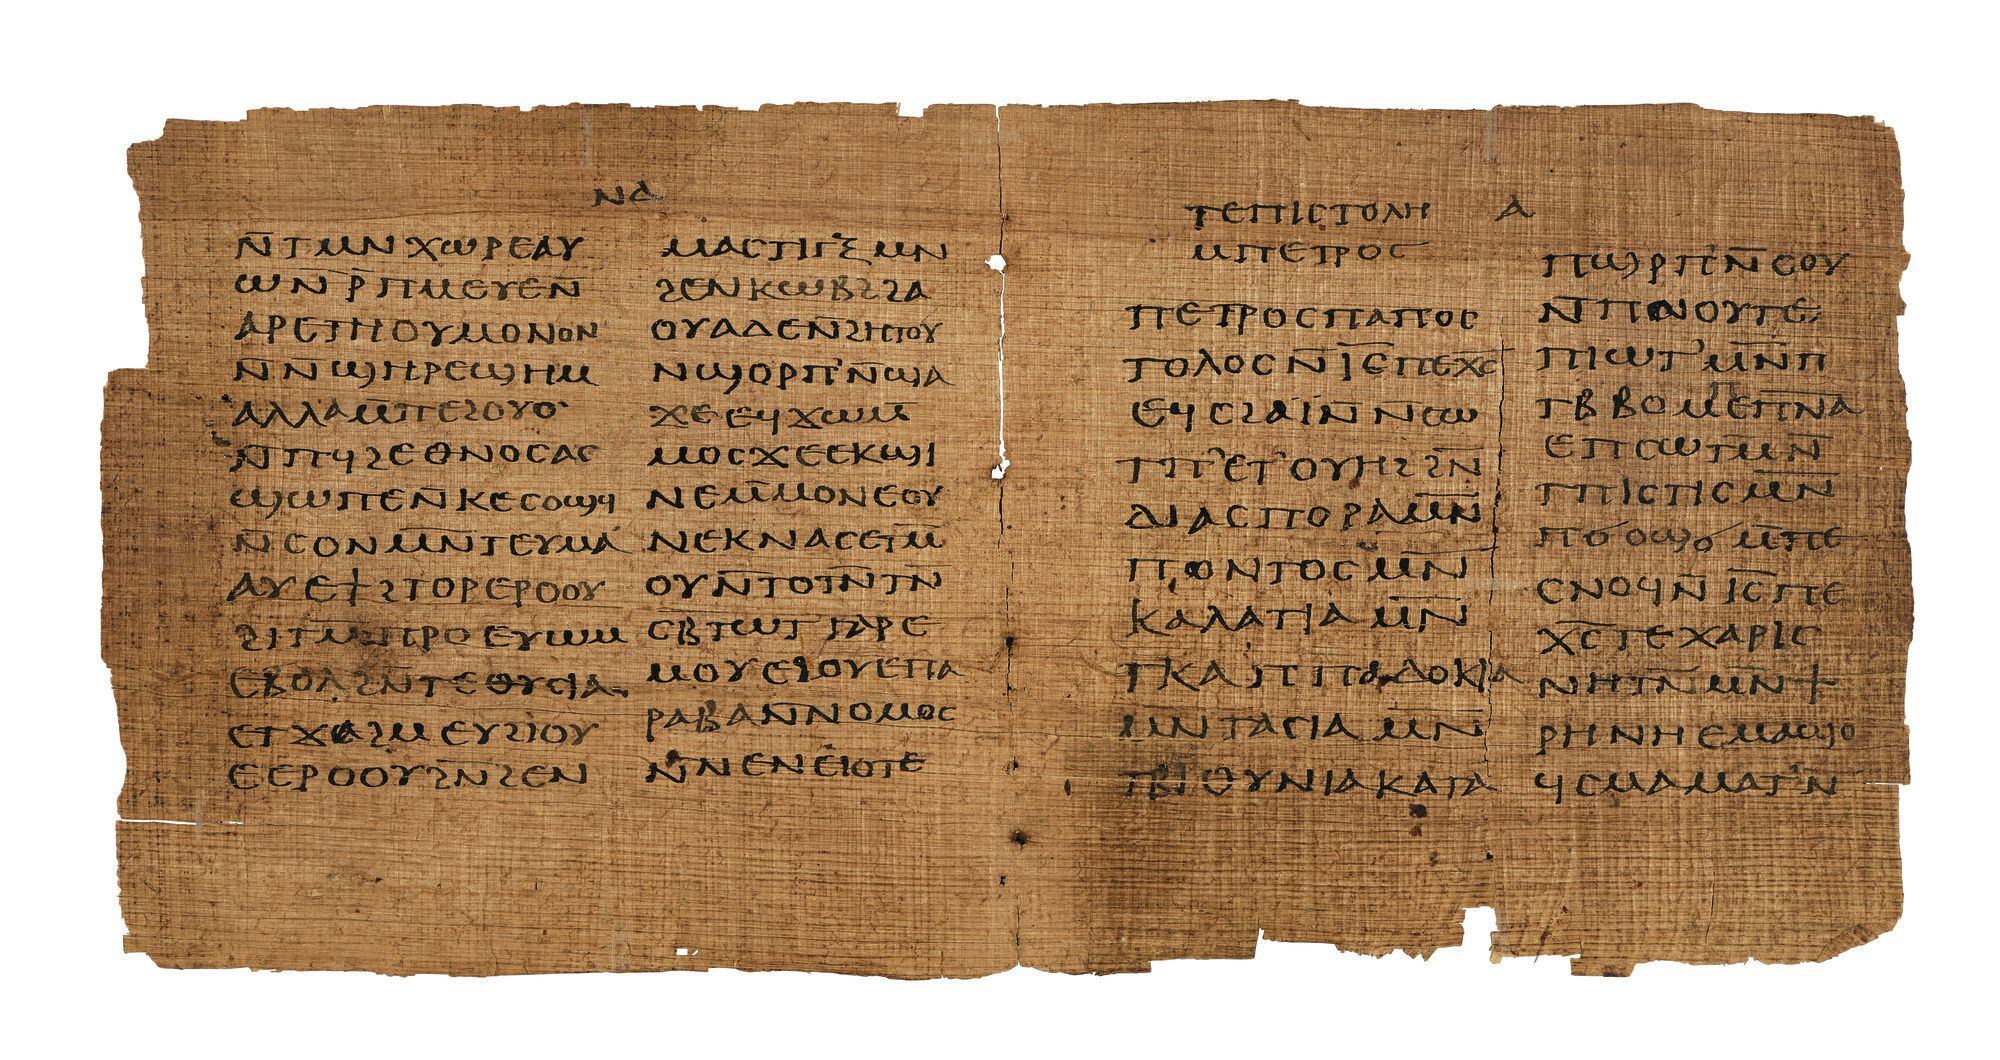 ⲛⲁ
ⲛ̅ⲧⲙⲛⲭⲱⲣⲉⲁⲩ
ⲱⲛⲣ̅ⲡⲙⲉⲩⲉⲛ̅
ⲁⲣⲉⲧⲏⲟⲩⲙⲟⲛⲟⲛ
ⲛ̅ⲛ̅ϣⲏⲣⲉϣⲏⲙ
ⲁⲗⲗⲁⲙ̅ⲡⲉϩⲟⲩⲟ
ⲛ̅ⲡϥϩⲉⲑⲛⲟⲥⲁⲥ
ϣⲱⲡⲉⲛ̅ⲕⲉⲥⲟϣϥ
ⲛ̅ⲥⲟⲛⲙⲛ̅ⲧⲉⲩⲙⲁ
ⲁⲩⲉϯϩⲧⲟⲣⲉⲣⲟⲟⲩ
ϩⲓⲧⲙ̅ⲡⲣⲟⲉⲩⲱⲙ
ⲉⲃⲟⲗϩⲛ̅ⲧⲉⲑⲩⲥⲓⲁ
ⲉⲧϫⲁϩⲙⲉⲩϩⲓⲟⲩ
ⲉⲉⲣⲟⲟⲩϩⲛ̅ϩⲉⲛ
ⲙⲁⲥⲧⲓⲅⲝⲙⲛ
ϩⲉⲛⲕⲱⲃϩϩⲁ
ⲟⲩⲁⲇⲉⲛ̅ϩⲏⲧⲟⲩ
ⲛϣⲟⲣⲡ'ⲛ̅ϣⲁ
ϫⲉⲉϥϫⲱⲙ̅
ⲙⲟⲥϫⲉⲉⲕϣⲓ
ⲛⲉⲙ̅ⲙⲟⲛⲉⲟⲩ
ⲛⲉⲕⲛⲁⲥⲉⲧⲙ̅
ⲟⲩⲛ̅ⲧⲟⲧⲛ̅ⲧⲛ̅
ⲥⲃ̅ⲧⲱⲧⲅⲁⲣⲉ
ⲙⲟⲩⲉϩⲟⲩⲉⲡⲁ
ⲣⲁⲃⲁⲛ̅ⲛⲟⲙⲟⲥ
ⲛ̅ⲛⲉⲛⲉⲓⲟⲧⲉ
ⲧⲉⲡⲓⲥⲧⲟⲗⲏ ⲁ
ⲙⲡⲉⲧⲣⲟⲥ
ⲡⲉⲧⲣⲟⲥⲡⲁⲡⲟⲥ
ⲧⲟⲗⲟⲥⲛ̅ⲓ̅ⲥ̅ⲡⲉⲭ̅ⲥ̅
ⲉϥⲥϩⲁⲓ̈ⲛ̅ⲛ̅ⲥⲱ
ⲧⲡ'ⲉⲧ'ⲟⲩⲏϩϩⲛ̅
ⲇⲓⲁⲥⲡⲟⲣⲁⲙⲛ̅
ⲡⲟⲛⲧⲟⲥⲙⲛ̅
ⲕⲁⲗⲁⲧⲓⲁⲙⲛ̅
ⲧⲕⲁⲡⲡⲁⲇⲟⲕⲓⲁ
ⲙⲛⲧⲁⲥⲓⲁⲙⲛ̅
ⲧⲃⲓⲑⲩⲛⲓⲁⲕⲁⲧⲁ
ⲡϣⲣⲡ'ⲛ̅ⲥⲟⲩ
ⲛ̅ⲡⲛⲟⲩⲧⲉ
ⲡⲓⲱⲧ'ⲙⲛ̅ⲡ
ⲧⲃⲃⲟⲙⲡⲉⲡ̅ⲛ̅ⲁ̅
ⲉⲡⲥⲱⲧⲙⲛ̅
ⲧⲡⲓⲥⲧⲓⲥⲙⲛ̅
ⲡϭⲟϣϭⲙ̅ⲡⲉ
ⲥⲛⲟϥⲛ̅ⲓ̅ⲥ̅ⲡⲉ
ⲭ̅ⲥ̅ⲧⲉⲭⲁⲣⲓⲥ
ⲛⲏⲧⲛ̅ⲙⲛ̅ϯ
ⲣⲏⲛⲏⲉⲙⲁϣⲟ
ϥⲥⲙⲁⲙⲁⲧ'ⲛ